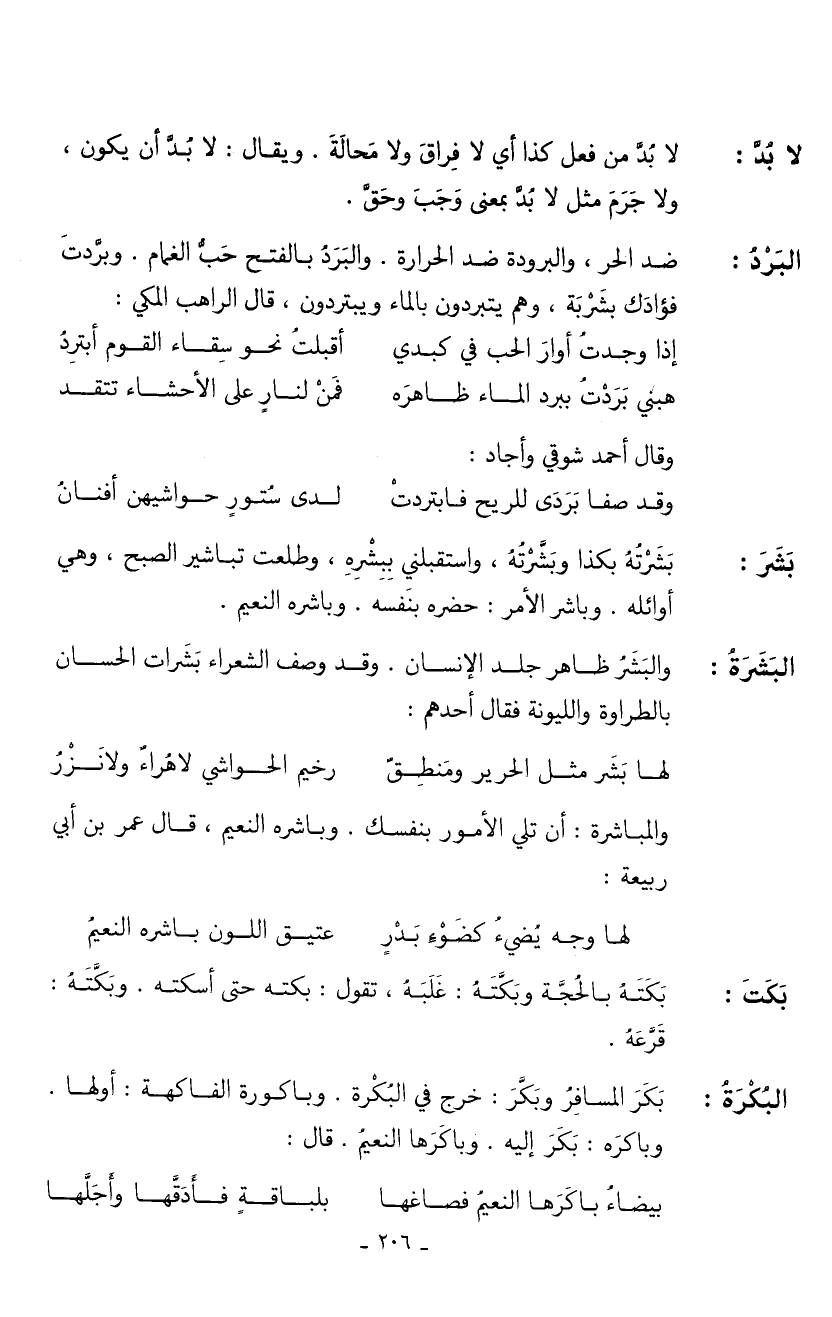 لا بُدَّ : لا بُدَّ من فعل كذا أي لا فِراقَ ولا مَحالَةَ . ويقال : لا بُدَّ أن يكون ،
ولا جَرَمَ مثل لا بُدَّ بمعنى وَجَبَ وحَقَّ .
البَرْدُ : ضد الحر ، والبرودة ضد الحرارة . والبَرَدُ بالفتح حَبُّ الغمام . وبرَّدتَ
فؤادَك بشَرْبَة ، وهم يتبردون بالماء ويبتردون ، قال الراهب المكي :
إذا وجدتُ أوارَ الحب في كبدي أقبلتُ نحو سِقاء القوم أبتردُ
هبني بَرَدْتُ ببرد الماء ظاهرَه فمَنْ لنارٍ على الأحشاء تتقد
وقال أحمد شوقي وأجاد :
وقد صفا بَرَدَى للريح فابتردتْ لدى سُتورٍ حواشيهن أفنانُ
بَشَرَ : بَشَرْتُهُ بكذا وبَشَّرْتُهُ ، واستقبلني بِبِشْرِهِ ، وطلعت تباشير الصبح ، وهي
أوائله . وباشر الأمر : حضره بنَفسه . وباشره النعيم .
البَشَرَةُ : والبَشَرُ ظاهر جلد الإنسان . وقد وصف الشعراء بَشَرات الحسان
بالطراوة والليونة فقال أحدهم :
لها بَشَر مثل الحرير ومَنطِقٌ رخيم الحواشي لاهُراءٌ ولانَزْرُ
والمباشرة : أن تلي الأمور بنفسك . وباشره النعيم ، قال عمر بن أبي
ربيعة :
لها وجه يُضيءُ كضَوْءِ بَدْرٍ عتيق اللون باشره النعيمُ
بَكَتَ : بَكَتَهُ بالحُجَّة وبَكَّتَهُ : غَلَبَهُ ، تقول : بكته حتى أسكته . وبَكَّتَهُ :
قَرَّعَهُ .
البُكْرَةُ : بَكَرَ المسافِرُ وبَكَّرَ : خرج في البُكْرة . وباكورة الفاكهة : أولها .
وباكرَه : بَكَرَ إليه . وباكَرَها النعيمُ . قال :
بيضاءُ باكَرَها النعيمُ فصاغها بلباقةٍ فأدَقَّها وأجَلَّها
- ٢٠٦ -